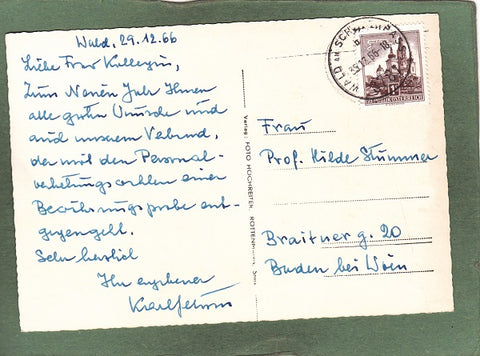 Wald, 29.12.66
Liebe Frau Kollegin,
Zum Neuen Jahr Ihnen
alle guten Wünsche und
auch unserem Verband,
der mit den Personal-
vertretungswahlen einer
Bewährungsprobe ent-
gegengeht.
Sehr herzlich
Ihr ergebener
Verlag: FOTO HOCHREITER,
WALD AM SCHOBERPASS
REPUBLIK ÖSTERREICH
Frau
Prof. Hilde Stummer
Braitnerg. 20
Baden bei Wien